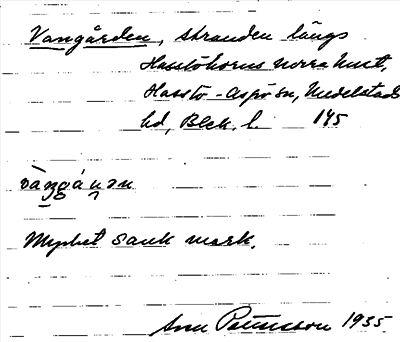 Vangården, stranden längs
Hasslöhorns norra kust,
Hasslö-Aspö sn, Medelstads
hd, Blek. l. 145
Mycket sank mark.
1935